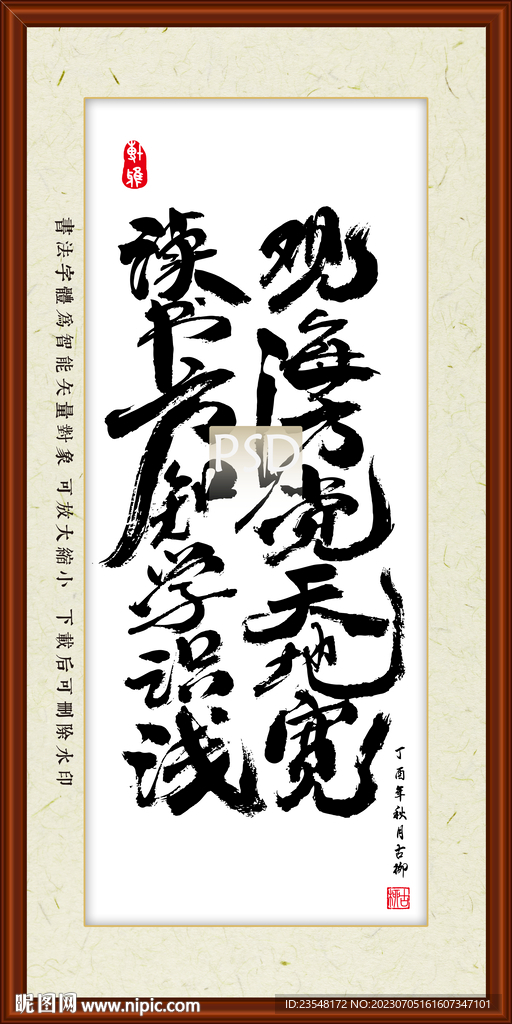 观海方觉天地宽
读书方知学识浅
丁酉年秋月古柳
书法字體為智能矢量對象 可放大縮小 下載后可删除水印
PSD
昵图网 www.nipic.com
ID:23548172 NO:20230705161607347101